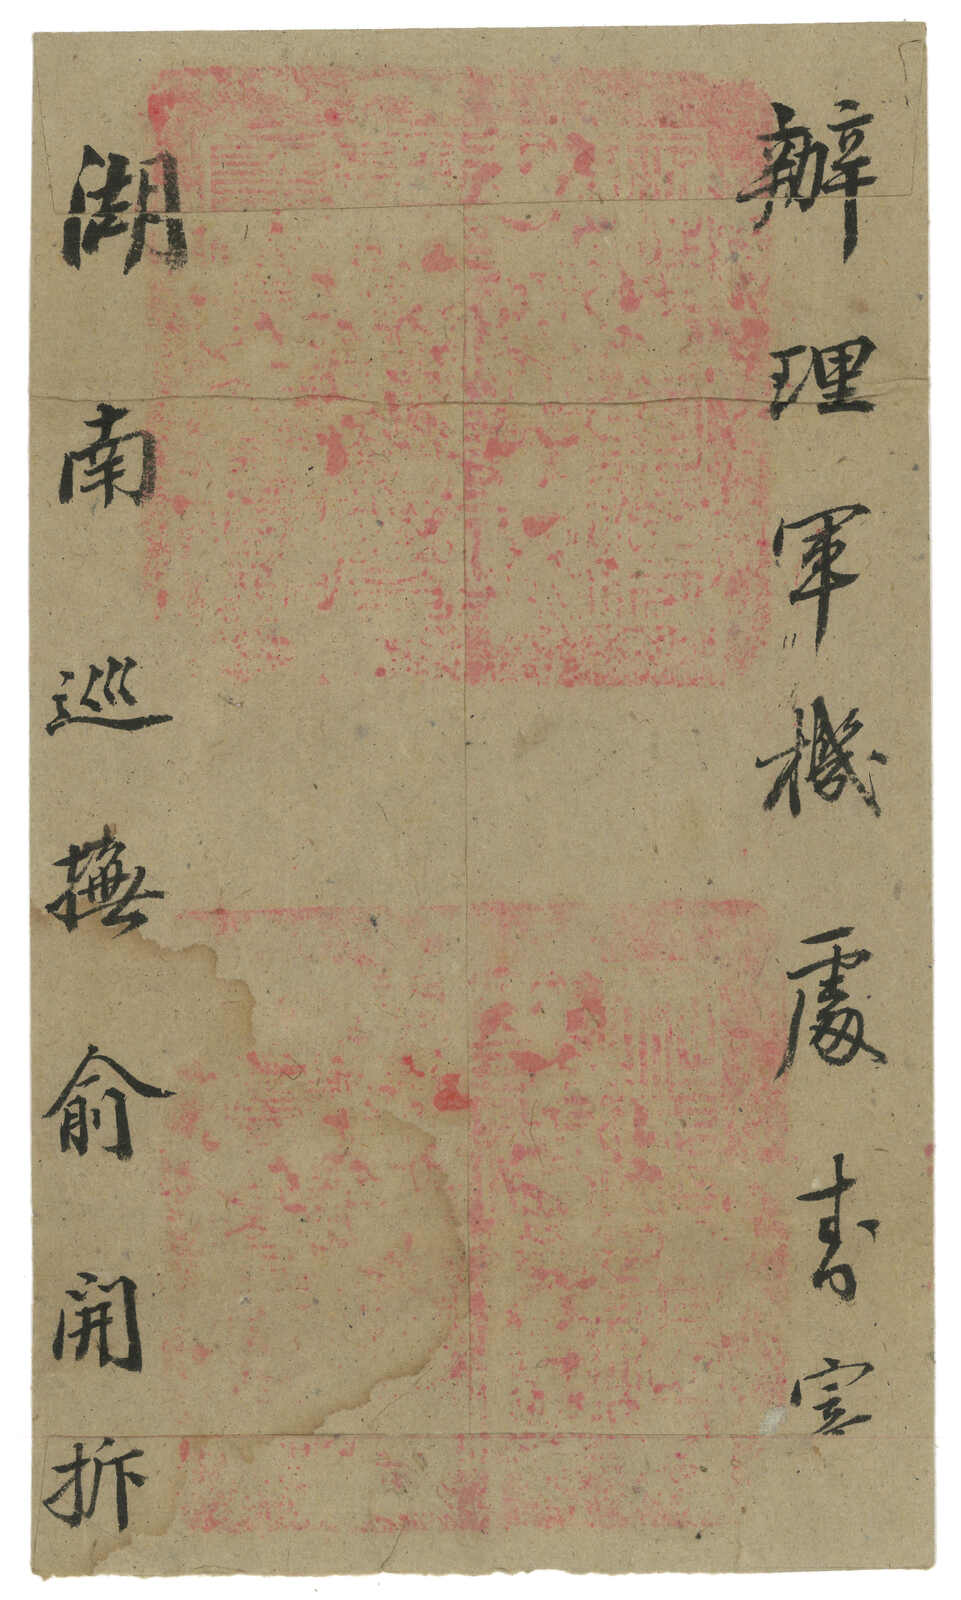 辦理軍機處
湖南巡撫俞開拆